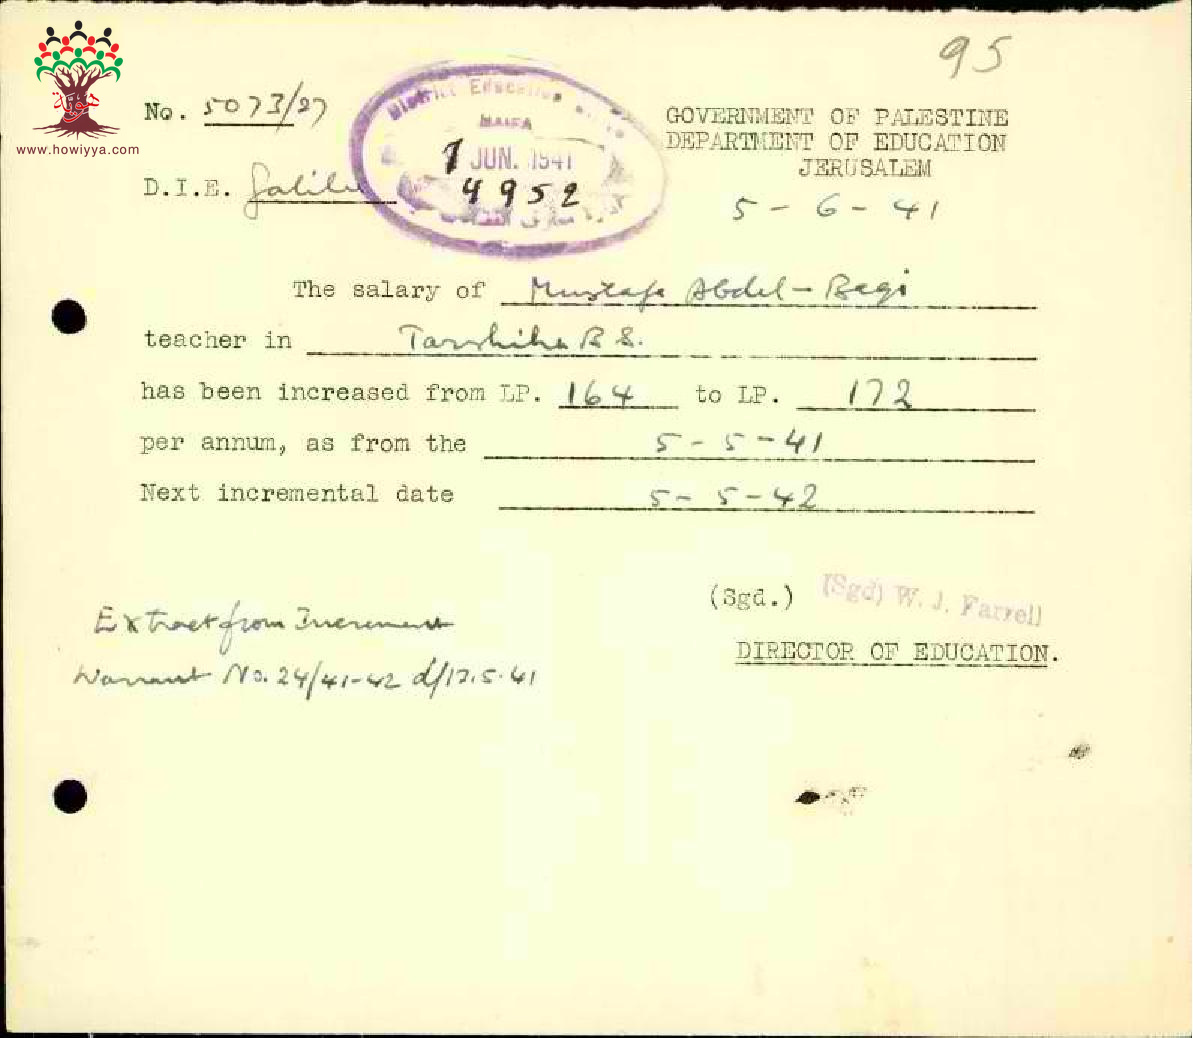 95
www.howiyya.com
No. 5073/27
District Education
HAIFA
7 JUN. 1941
4952
GOVERNMENT OF PALESTINE
DEPARTMENT OF EDUCATION
JERUSALEM
5 - 6 - 41
D.I.E. Galilee
The salary of Mustafa Abdel-Baqi
teacher in Tarshiha B S.
has been increased from LP. 164 to LP. 172
per annum, as from the 5 - 5 - 41
Next incremental date 5 - 5 - 42
(Sgd.) (Sgd) W. J. Farrell
DIRECTOR OF EDUCATION.
Extract from Increment
Warrant No. 24/41-42 d/17.5.41